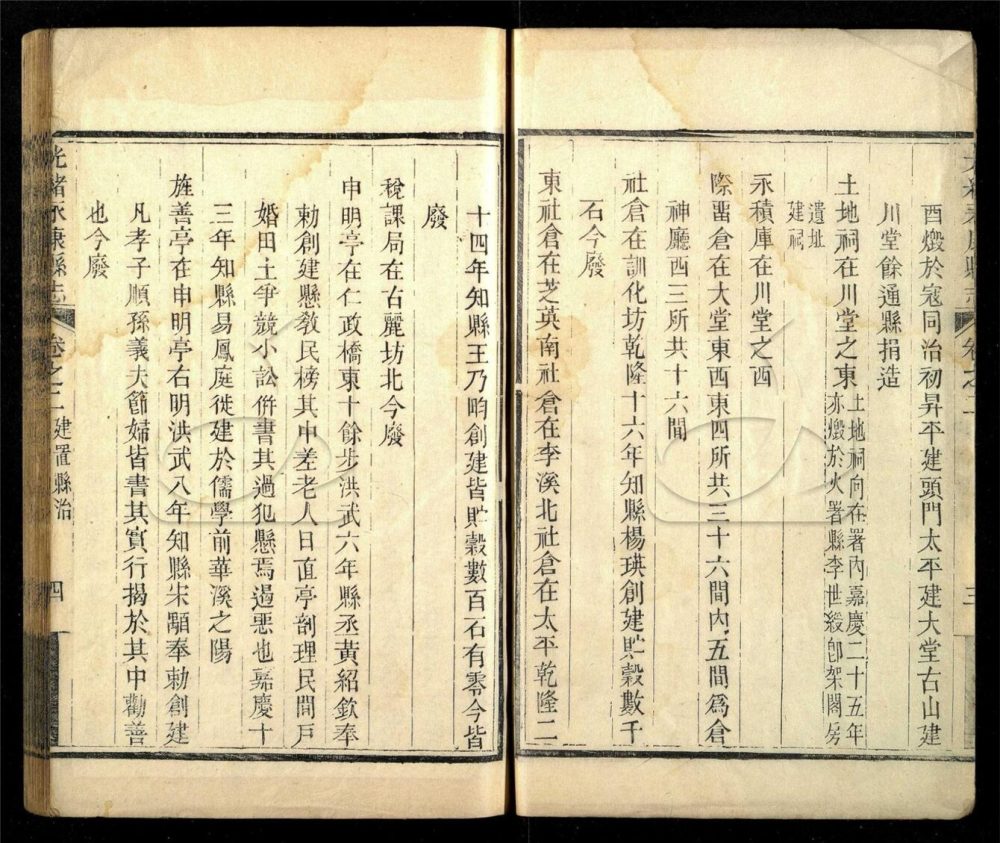 酉燬於寇同治初昇平建頭門太平建大堂古山建
川堂餘通縣捐造
土地祠在川堂之東土地祠向在署內嘉慶二十五年
亦燬於火署縣李世緞卽架閣房
遺址
建祠
永積庫在川堂之西
際留倉在大堂東西東四所共三十六間內五間爲倉
神廳西三所共十六間
社倉在訓化坊乾隆十六年知縣楊瑛創建貯穀數千
石今廢
東社倉在芝英南社倉在李溪北社倉在太平乾隆二
三
十四年知縣王乃畇創建皆貯穀數百石有零今皆
廢
稅課局在古麗坊北今廢
申明亭在仁政橋東十餘步洪武六年縣丞黃紹欽奉
勅創建懸敎民榜其中差老人日直亭剖理民間戶
婚田土爭競小訟併書其過犯懸焉遏惡也嘉慶十
三年知縣易鳳庭徙建於儒學前華溪之陽
旌善亭在申明亭右明洪武八年知縣宋顒奉勅創建
凡孝子順孫義夫節婦皆書其實行揭於其中勸善
也今廢
光緒永康縣志 卷之二 建置縣治 四